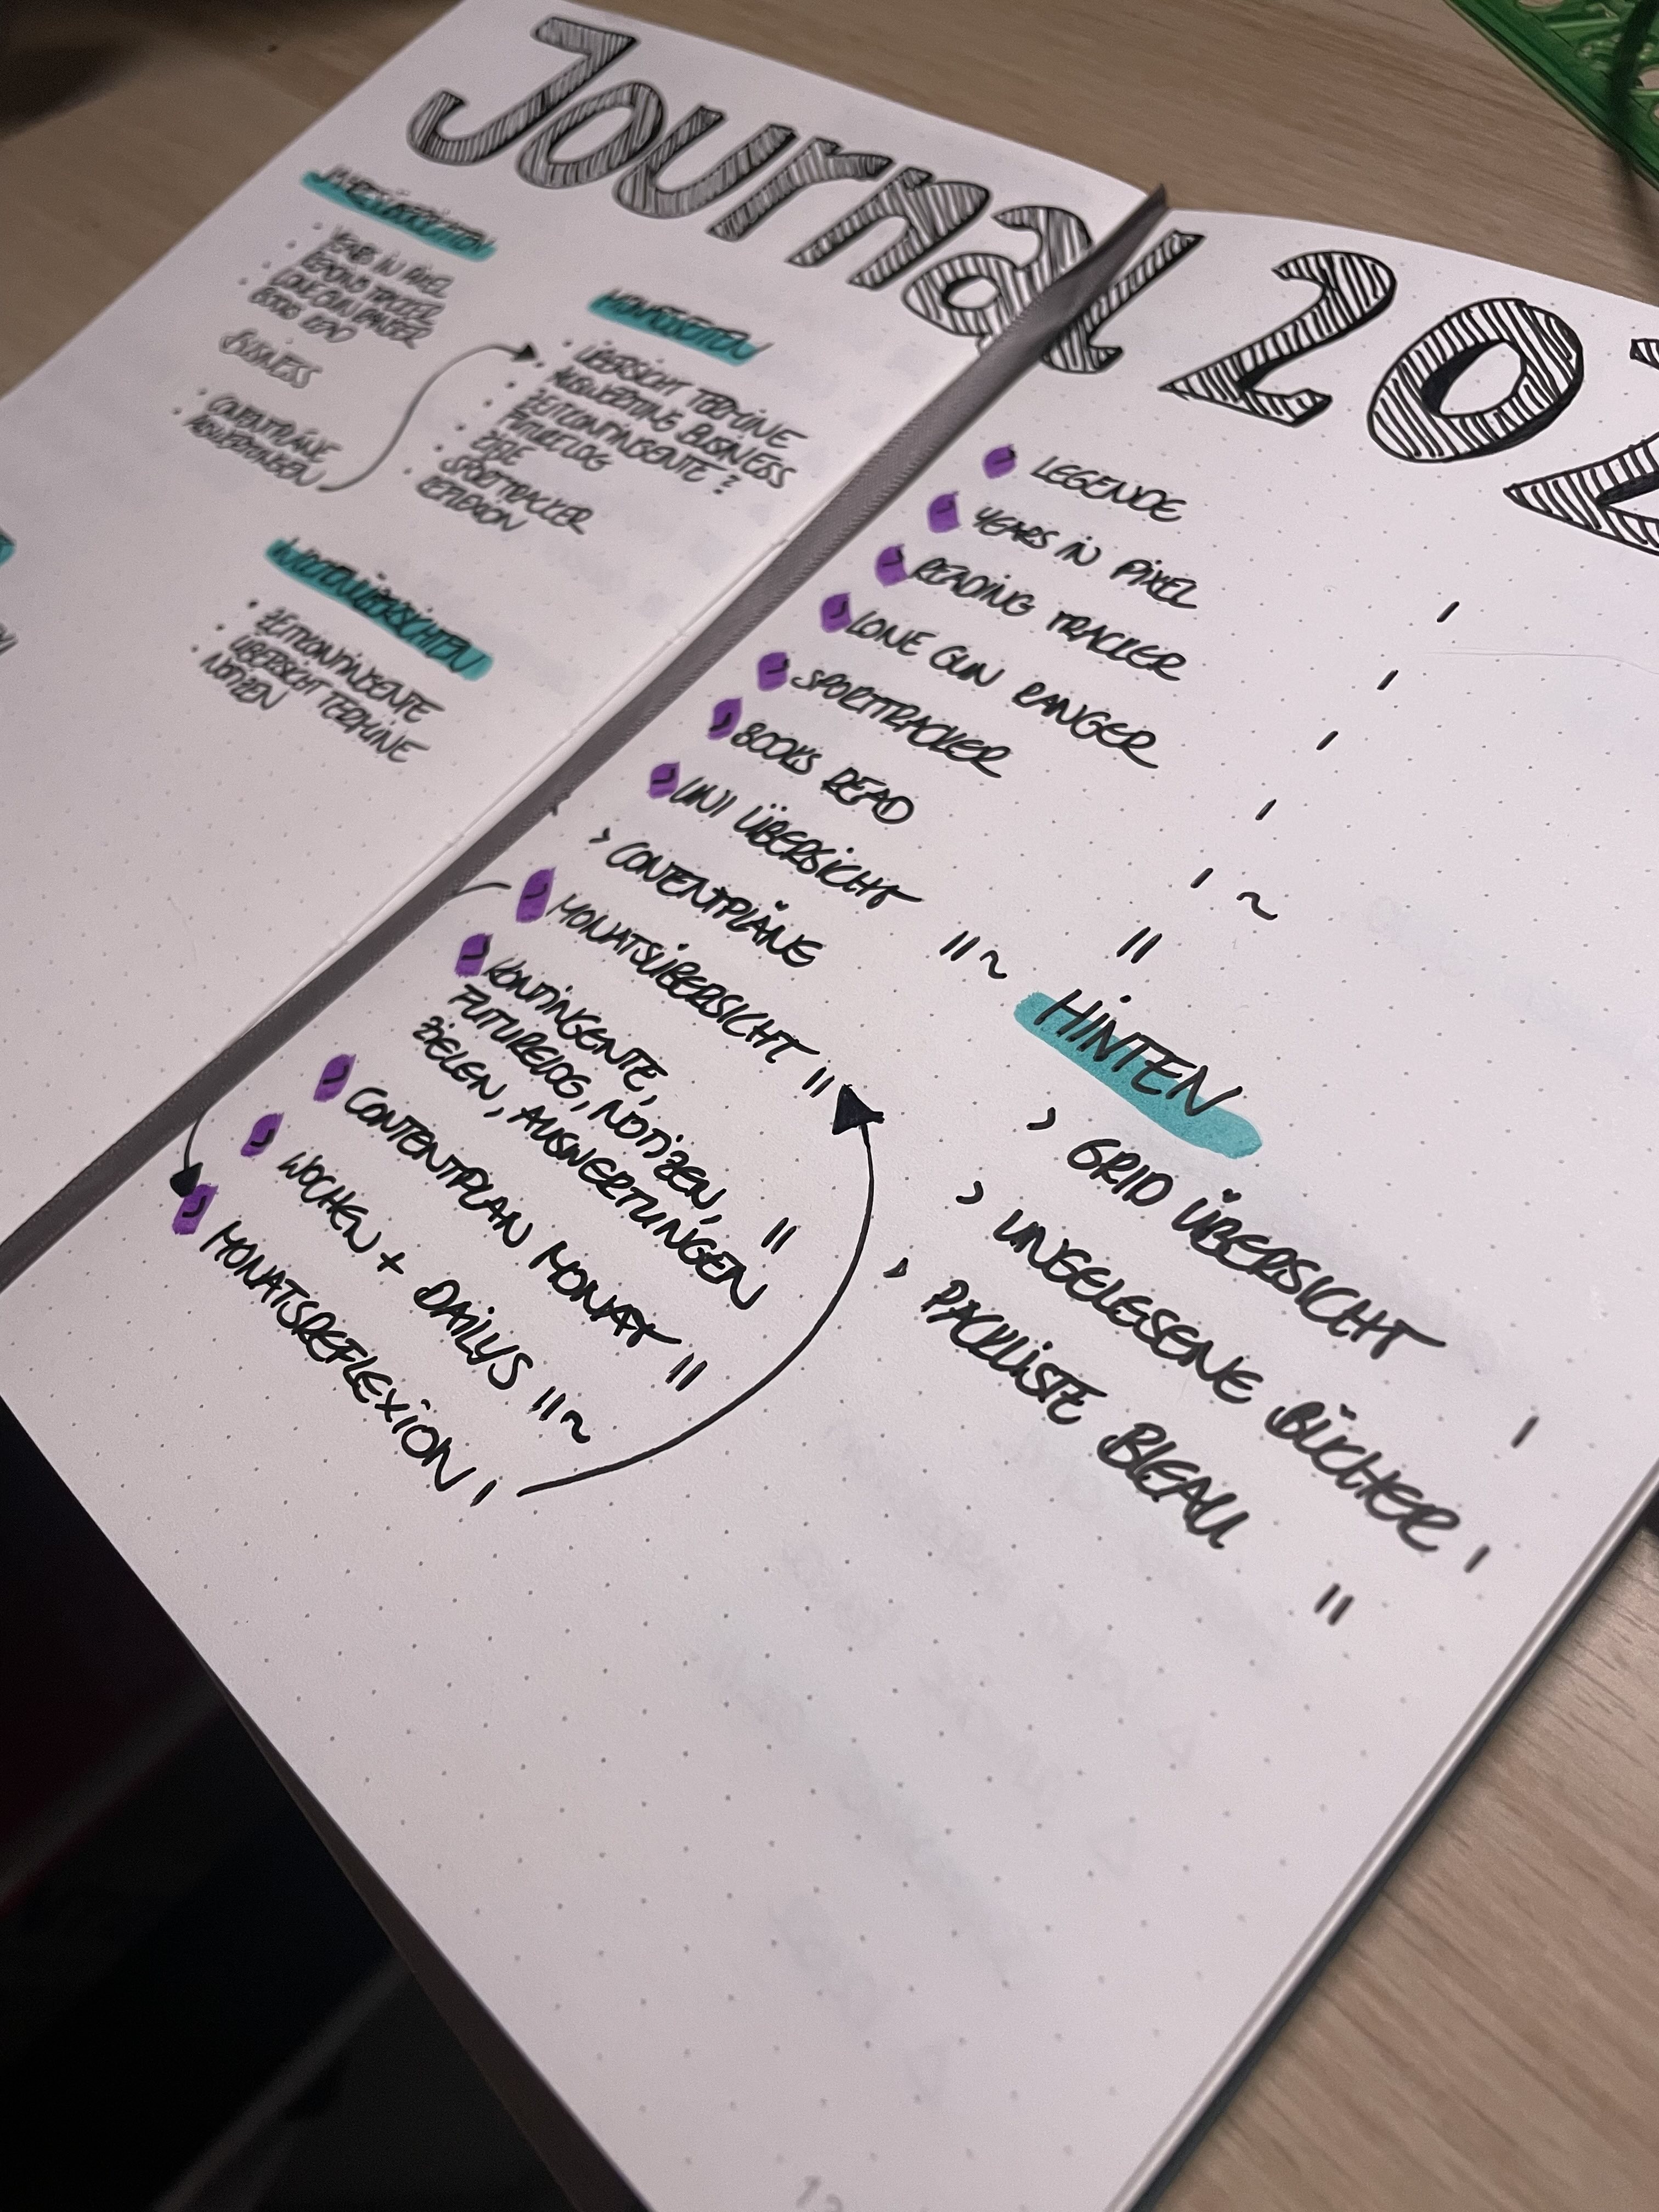 Journal 202
JAHRESÜBERSICHTEN
· YEARS IN PIXEL
· READING TRACKER
· LONE GUN RANGER
· BOOKS READ
BUSINESS
· CONTENTPLÄNE
· AUSWERTUNGEN
MONATSSEITEN
· ÜBERSICHT TERMINE
· AUSWERTUNG BUSINESS
· ZEITKONTINGENTE?
· FUTURELOG
· ZIELE
· SPORTTRACKER
· REFLEXION
WOCHENÜBERSICHTEN
· ZEITKONTINGENTE
· ÜBERSICHT TERMINE
· NOTIZEN
> LEGENDE
> YEARS IN PIXEL I
> READING TRACKER I
> LONE GUN RANGER I
> SPORTTRACKER I
> BOOKS READ I ~
> UNI ÜBERSICHT II
> CONTENTPLÄNE II ~
> MONATSÜBERSICHT II
> KONTINGENTE,
FUTURELOG, NOTIZEN,
ZIELEN, AUSWERTUNGEN II
> CONTENTPLAN MONAT II
> WOCHEN + DAILYS II ~
> MONATSREFLEXION I
HINTEN
> GRID ÜBERSICHT I
> UNGELESENE BÜCHER I
> PACKLISTE BLEAU II